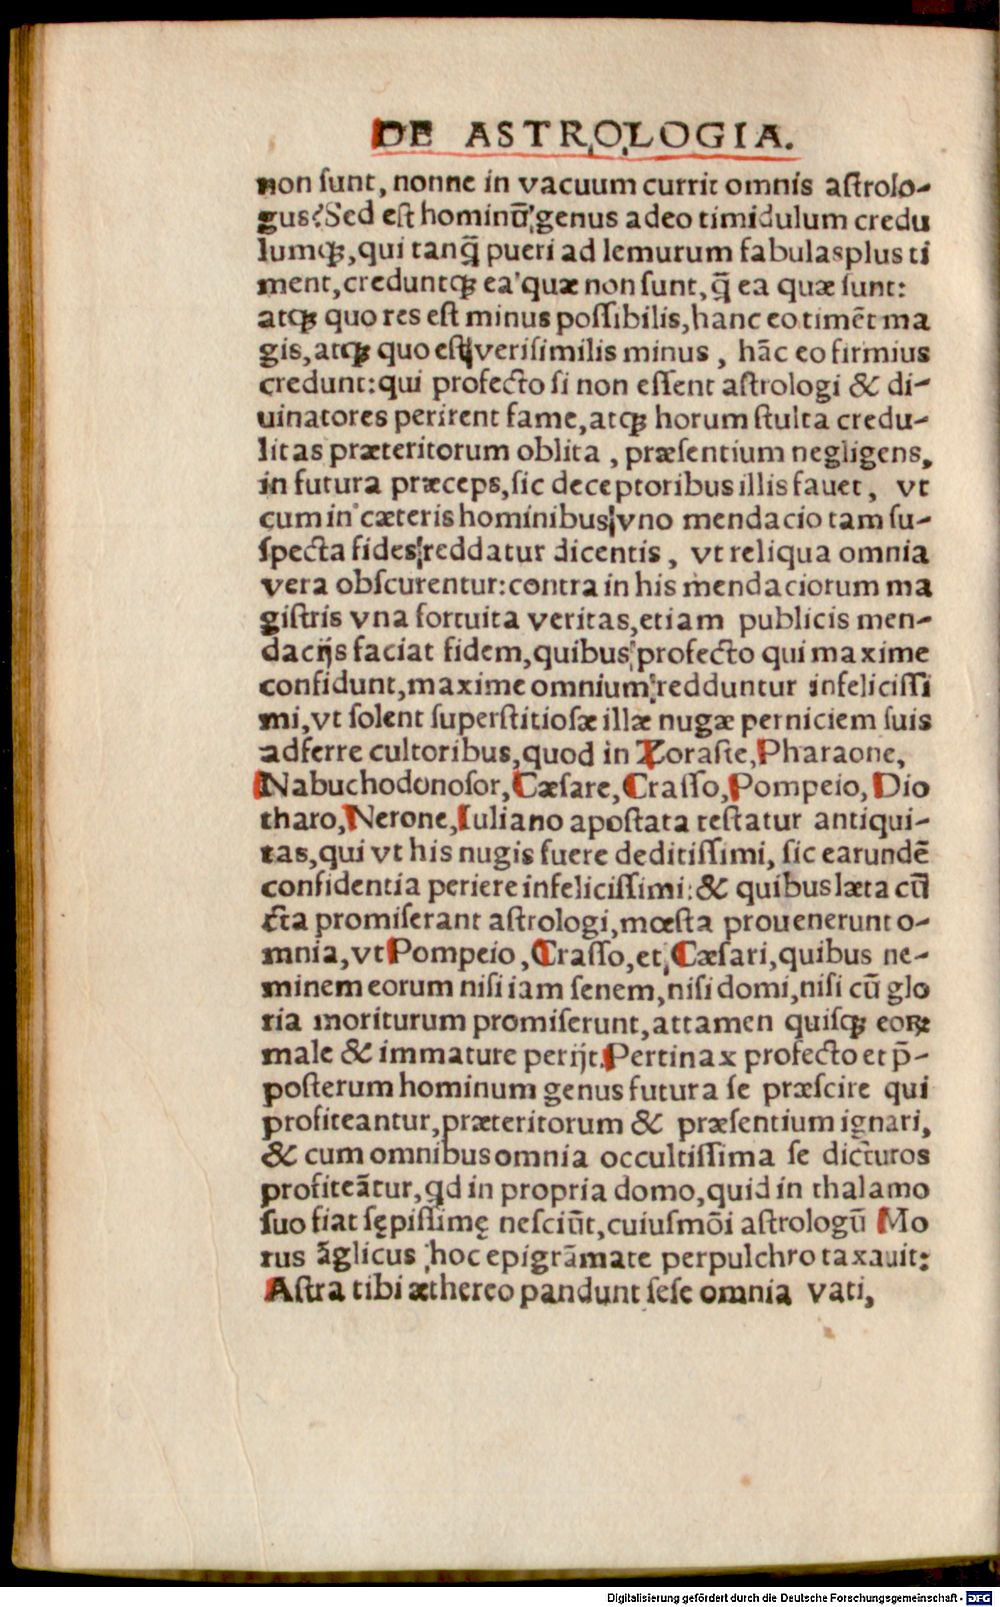 DE ASTROLOGIA.
non ſunt, nonne in vacuum currit omnis aſtrolo-
gus? Sed eſt hominū genus adeo timidulum credu
lumqꝫ, qui tanq̃ pueri ad lemurum fabulas plus ti
ment, creduntqꝫ ea quæ non ſunt, q̃ ea quæ ſunt:
atqꝫ quo res eſt minus poſſibilis, hanc eo timẽt ma
gis, atqꝫ quo eſt veriſimilis minus, hãc eo firmius
credunt: qui profecto ſi non eſſent aſtrologi & di-
uinatores perirent fame, atqꝫ horum ſtulta credu-
litas præteritorum oblita, præſentium negligens,
in futura præceps, ſic deceptoribus illis fauet, vt
cum in cæteris hominibus vno mendacio tam ſu-
ſpecta fides reddatur dicentis, vt reliqua omnia
vera obſcurentur: contra in his mendaciorum ma
giſtris vna fortuita veritas, etiam publicis men-
dacijs faciat fidem, quibus profecto qui maxime
confidunt, maxime omnium redduntur infeliciſſi
mi, vt ſolent ſuperſtitioſæ illæ nugæ perniciem ſuis
adferre cultoribus, quod in Zoraſte, Pharaone,
Nabuchodonoſor, Cæſare, Craſſo, Pompeio, Dio
tharo, Nerone, Iuliano apoſtata teſtatur antiqui-
tas, qui vt his nugis fuere deditiſſimi, ſic earundẽ
confidentia periere infeliciſſimi: & quibus læta cũ
cta promiſerant aſtrologi, mœſta prouenerunt o-
mnia, vt Pompeio, Craſſo, et Cæſari, quibus ne-
minem eorum niſi iam ſenem, niſi domi, niſi cũ glo
ria moriturum promiſerunt, attamen quiſqꝫ eoꝝ
male & immature perijt. Pertinax profecto et p̃-
poſterum hominum genus futura ſe præſcire qui
profiteantur, præteritorum & præſentium ignari,
& cum omnibus omnia occultiſſima ſe dicturos
profiteãtur, qd in propria domo, quid in thalamo
ſuo fiat ſępiſſimę neſciũt, cuiuſmõi aſtrologũ Mo
rus ãglicus hoc epigrãmate perpulchro taxauit:
Aſtra tibi æthereo pandunt ſeſe omnia vati,
Digitalisierung gefördert durch die Deutsche Forschungsgemeinschaft - DFG